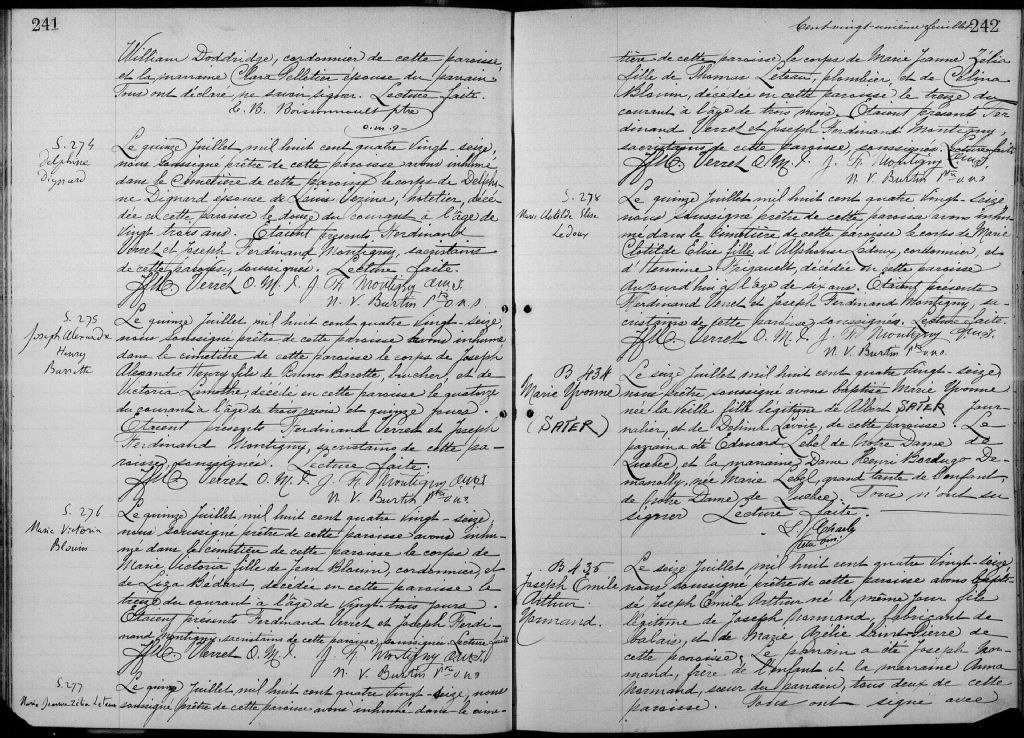 241
William Doddridge, cordonnier de cette paroisse,
et la marraine Clara Pelletier épouse du parrain
Tous ont déclaré ne savoir signer. Lecture faite.
E. B. Boissonnault ptre
o.m.i.
S. 274
Delphine
Dignard
Le quinze Juillet mil huit cent quatre vingt-seize,
nous soussigné prêtre de cette paroisse avons inhumé
dans le Cimetière de cette paroisse le corps de Delphi-
ne Dignard épouse de Louis Vezina, hôtelier, décé-
dée en cette paroisse le douze du courant à l'âge de
vingt trois ans. Étaient présents Ferdinand
Verret et Joseph Ferdinand Montigny, sacristains
de cette paroisse, soussignés. Lecture faite.
Verret O.M.I. J. F. Montigny
N. V. Burtin Ptre o.m.i.
S. 275
Joseph Alexandre
Henry
Barrette
Le quinze Juillet mil huit cent quatre vingt-seize,
nous soussigné prêtre de cette paroisse avons inhumé
dans le cimetière de cette paroisse le corps de Joseph
Alexandre Henry fils de Bruno Barette, boucher, et de
Victoria Lamothe, décédé en cette paroisse le quatorze
du courant à l'âge de trois mois et quinze jours.
Étaient présents Ferdinand Verret et Joseph
Ferdinand Montigny, sacristains de cette pa-
roisse, soussignés. Lecture faite.
Verret O.M.I. J. F. Montigny
N. V. Burtin Ptre o.m.i.
S. 276
Marie Victoria
Blouin
Le quinze Juillet mil huit cent quatre vingt-seize,
nous soussigné prêtre de cette paroisse avons inhu-
mé dans le cimetière de cette paroisse le corps de
Marie Victoria fille de Jean Blouin, cordonnier, et
de Liza Bédard, décédée en cette paroisse le
treize du courant à l'âge de vingt-trois jours.
Étaient présents Ferdinand Verret et Joseph Ferdi-
nand Montigny, sacristains de cette paroisse, soussignés. Lecture faite
Verret O.M.I. J. F. Montigny
N. V. Burtin Ptre o.m.i.
S. 277
Marie Jeanne Zélia Leteau
Le quinze Juillet mil huit cent quatre vingt-seize, nous
soussigné prêtre de cette paroisse avons inhumé dans le cime-
Cent vingt-unième feuillet 242
tière de cette paroisse le corps de Marie Jeanne Zélia
fille de Thomas Leteau, plombier, et de Célina
Blouin, décédée en cette paroisse le treize du
courant à l'âge de trois mois. Étaient présents Fer-
dinand Verret et Joseph Ferdinand Montigny,
sacristains de cette paroisse, soussignés. Lecture faite
Verret O.M.I. J. F. Montigny
N. V. Burtin Ptre o.m.i.
S. 278
Marie Clotilde Elise
Ledoux
Le quinze Juillet mil huit cent quatre vingt-seize
nous soussigné prêtre de cette paroisse avons inhu-
mé dans le cimetière de cette paroisse le corps de Marie
Clotilde Elise fille d'Alphonse Ledoux, cordonnier, et
d'Hermine Trigault, décédée en cette paroisse
aujourd'hui à l'âge de six ans. Étaient présents
Ferdinand Verret et Joseph Ferdinand Montigny, sa-
cristains de cette paroisse, soussignés. Lecture faite.
Verret O.M.I. J. F. Montigny
N. V. Burtin Ptre o.m.i.
B 434
Marie Yvonne
(SATER)
Le seize Juillet mil huit cent quatre vingt-seize
nous prêtre, soussigné avons baptisé Marie Yvonne
née la veille fille légitime de Albert SATER jour-
nalier, et de Delina Lavoie, de cette paroisse. Le
parrain a été Edouard Lebel de Notre Dame de
Québec, et la marraine Dame Henri Bordugo De-
manolly, née Marie Lebel, grand'tante de l'enfant
de Notre Dame de Québec. Tous n'ont su
signer Lecture faite.
B 435
Joseph Emile
Arthur
Normand.
Le seize Juillet mil huit cent quatre vingt-seize
nous soussigné prêtre de cette paroisse avons bapti-
sé Joseph Emile Arthur né le même jour fils
légitime de Joseph Normand, fabricant de
balais, et de Marie Azélie Saint-Pierre de
cette paroisse. Le parrain a été Joseph Nor-
mand, frère de l'enfant et la marraine Anna
Normand, sœur du parrain, tous deux de cette
paroisse. Tous ont signé avec